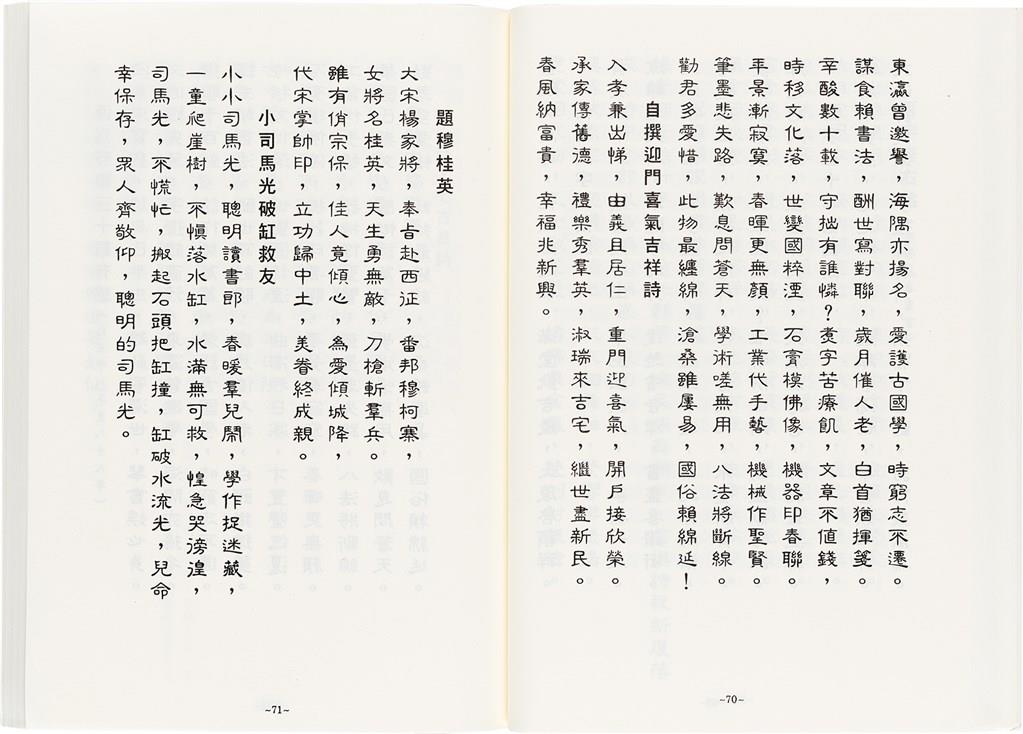 東瀛曾邀譽，海隅亦揚名，愛護古國學，時窮志不遷。
謀食賴書法，酬世寫對聯，歲月催人老，白首猶揮箋。
辛酸數十載，守拙有誰憐？煮字苦療飢，文章不值錢，
時移文化落，世變國粹湮，石膏模佛像，機器印春聯。
年景漸寂寞，春暉更無顏，工業代手藝，機械作聖賢。
筆墨悲失路，歎息問蒼天，學術嗟無用，八法將斷線。
勸君多愛惜，此物最纏綿，滄桑雖屢易，國俗賴綿延！
自撰迎門喜氣吉祥詩
入孝兼出悌，由義且居仁，重門迎喜氣，開戶接欣榮。
承家傳舊德，禮樂秀羣英，淑瑞來吉宅，繼世盡新民。
春風納富貴，幸福兆新興。
~70~
題穆桂英
大宋楊家將，奉旨赴西征，番邦穆柯寨，
女將名桂英，天生勇無敵，刀槍斬羣兵。
雖有俏宗保，佳人竟傾心，為愛傾城降，
代宋掌帥印，立功歸中土，美眷終成親。
小司馬光破缸救友
小小司馬光，聰明讀書郎，春暖羣兒鬧，學作捉迷藏，
一童爬崖樹，不慎落水缸，水滿無可救，惶急哭徬徨，
司馬光，不慌忙，搬起石頭把缸撞，缸破水流光，兒命
幸保存，眾人齊敬仰，聰明的司馬光。
~71~